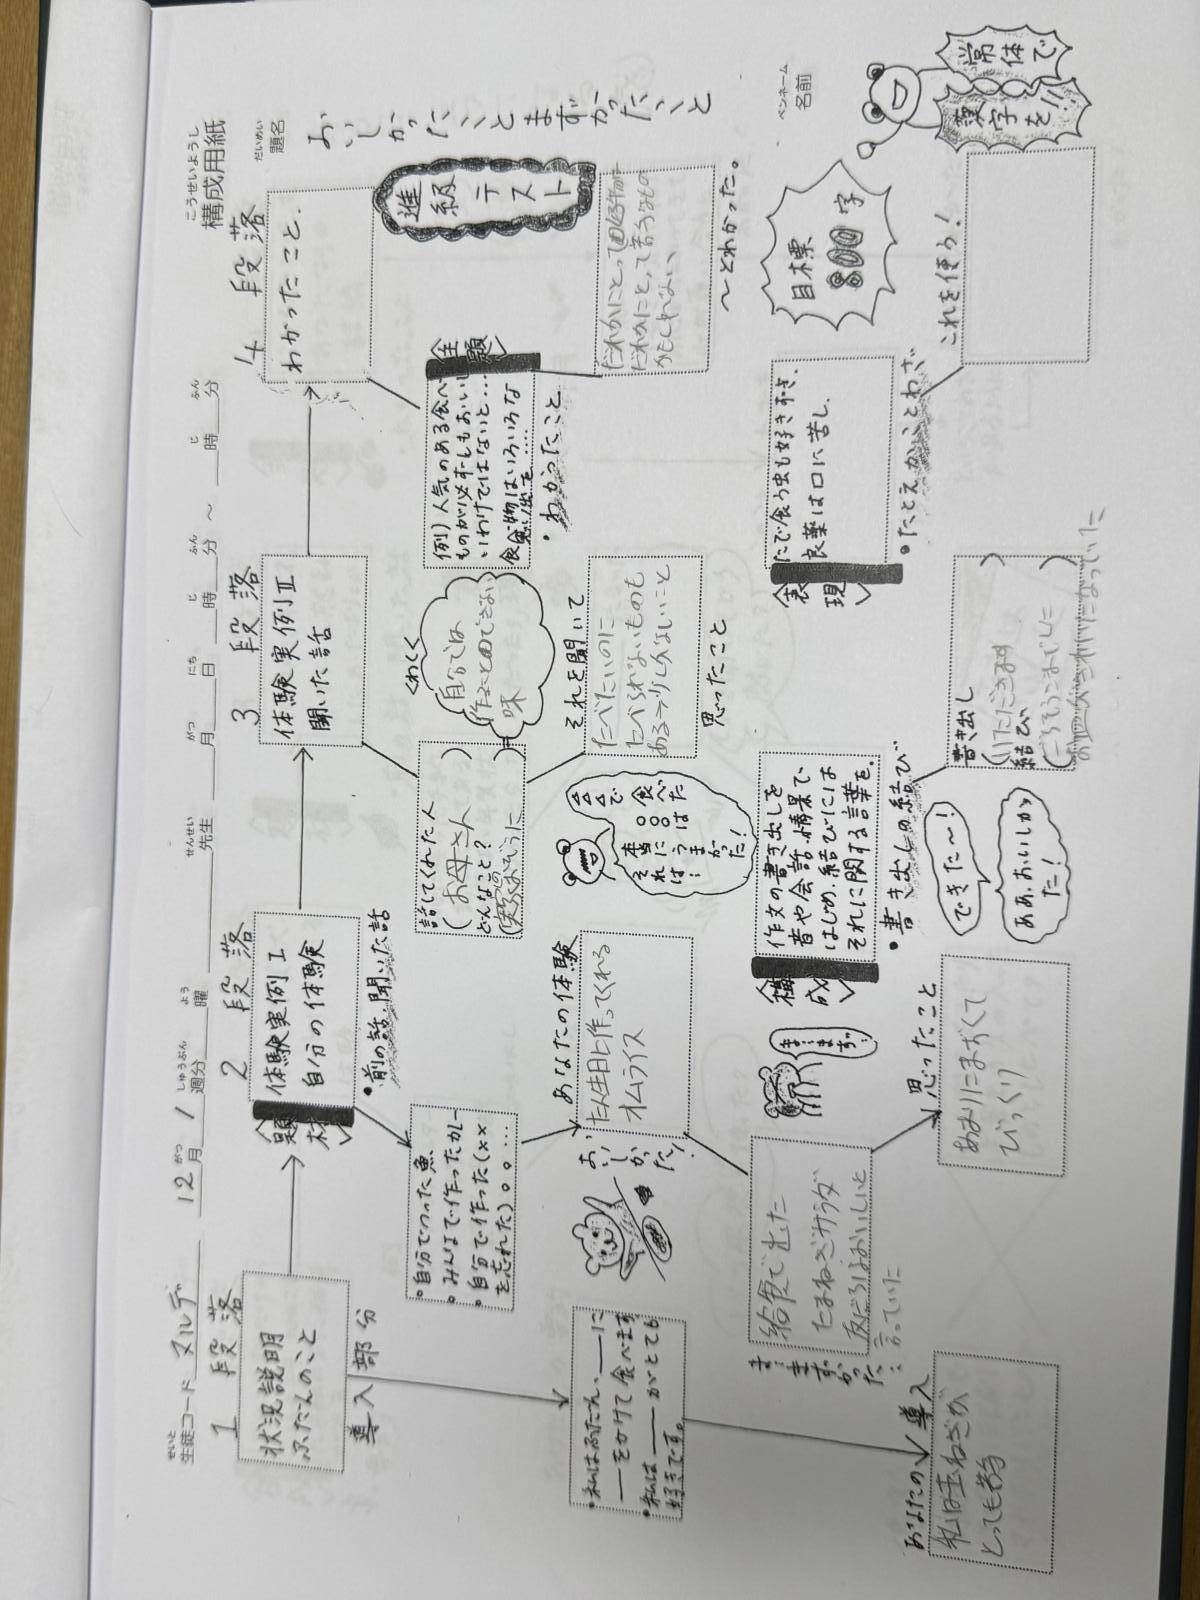 構成用紙
こうせいようし
生徒コード ヌルデ 12月 1週分 曜 先生 月 日 時 分 ～ 時 分
せいと がつ しゅうぶん よう せんせい がつ にち じ ふん じ ふん
題名
だいめい
おいしかったこととまずかったこと
ペンネーム
名前
常体で
漢字を!!
1 段落
状況説明
ふだんのこと
導入部分
・私はふだん、――に
――をかけて食べます
・私は――がとても
好きです。
あなたの導入
私は玉ねぎが
とっても
2 段落
〈題材〉
体験実例Ⅰ
自分の体験
・前の話、聞いた話
・自分でつった魚
・みんなで作ったカレー
・自分で作った(××
を忘れた)○○…
あなたの体験
たん生日に作ってくれる
オムライス
おいしかった!
給食で出た
たまねぎサラダ
友だちはおいしいと
言っていた
ま…まずかった…
ま…まず…
思ったこと
あまりにまずくて
びっくり
3 段落
体験実例Ⅱ
聞いた話
話してくれた人
(お母さん)
どんなこと?
くわしく
自分では
作ることのできない
味
それを聞いて
たべたいのに
たべられないものも
ある→少しくないこと
思ったこと
△△△で食べた
○○○は
本当にうまかった!
それは…
〈構成〉
作文の書き出しを
音や会話、情景で、
はじめ、結びには
それに関する言葉を。
・書き出しの結び
書き出し
(いただきます)
結び
(ごちそうさまでした)
お皿がきれいになっていた
できた～!
ああ、おいしかっ
た!
4 段落
わかったこと、
進級テスト
〈主題〉
例)人気のある食べ
ものが必ずしもおいし
いわけではないと…
食べ物はいろいろな
思い出を……
・わかったこと
だれかにとって好物
だれかにとって苦うなもの
かもしれない
～とわかった。
〈表現〉
たで食う虫も好き好き、
良薬は口に苦し、
・たとえかことわざ
これを使う!
目標
800字